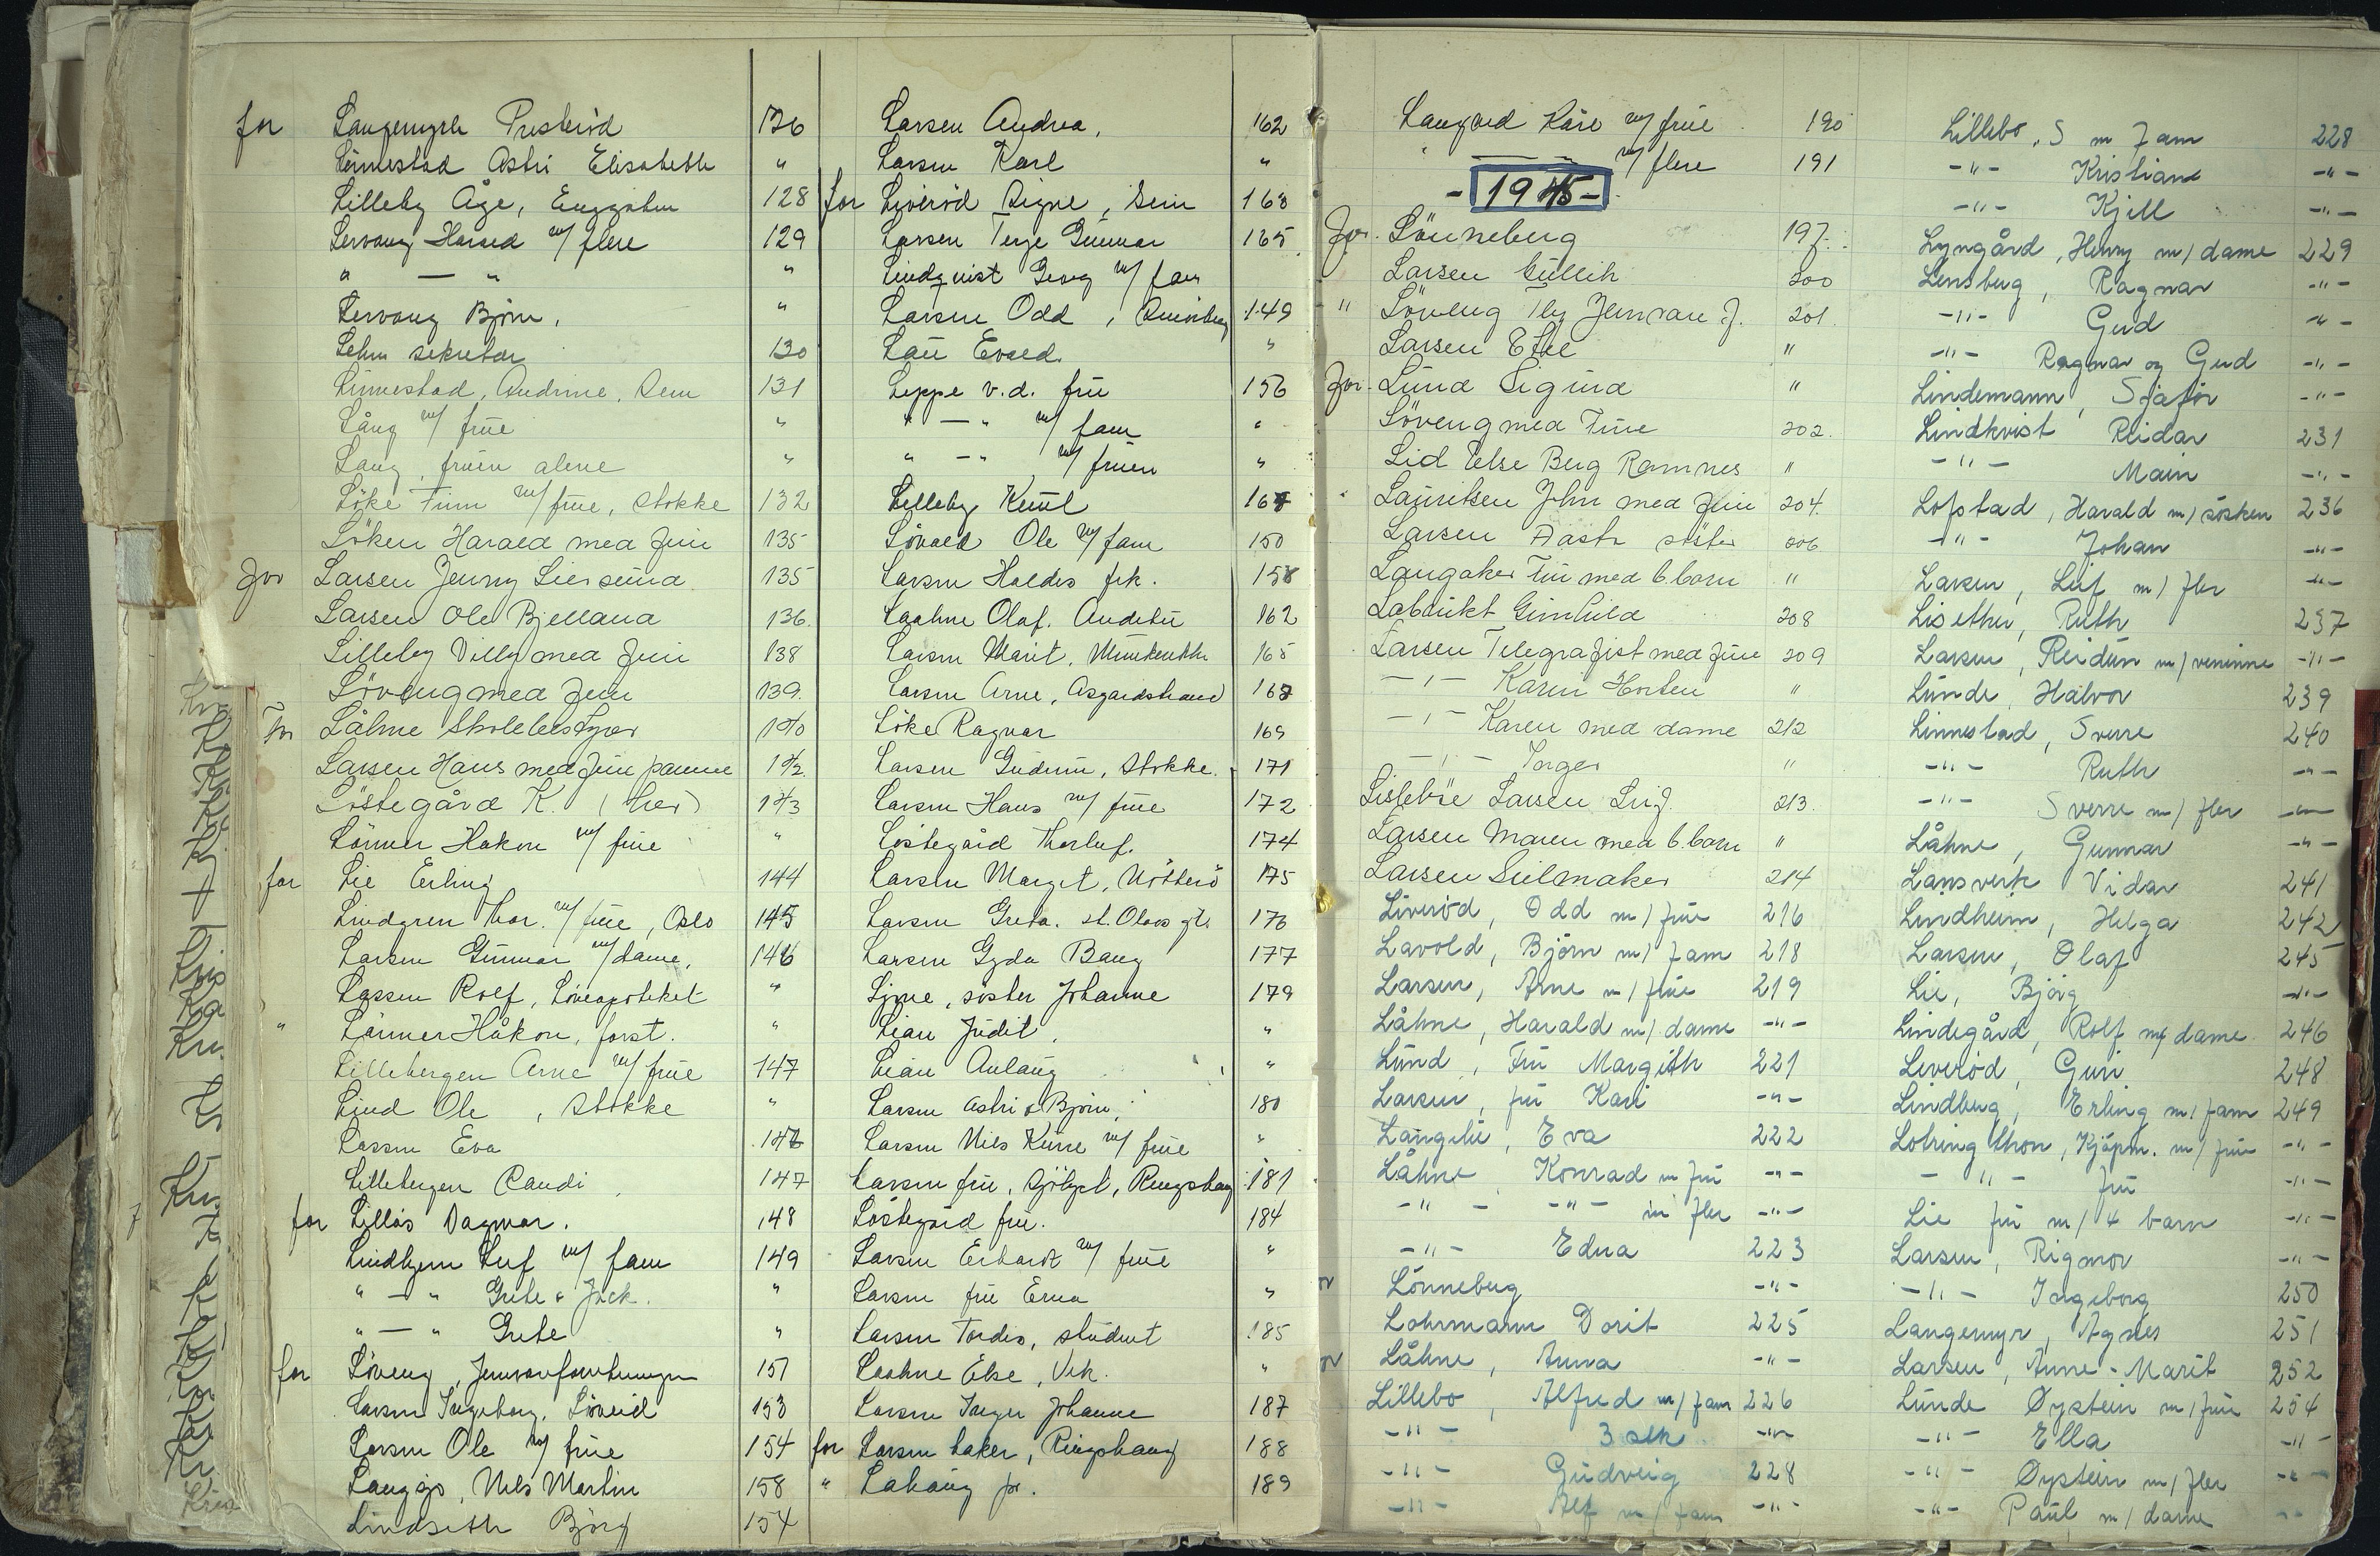 for Langemyrh Presterød 126
Linnestad Astri Elisabeth "
Lilleby Åge, Enggaten 128
Lervang Harald m/ flere 129
" — " "
Lervang Bjørn, "
Lehn sekretær 130
Linnestad, Andrine, Sem 131
Lång m/ frue "
Lang, fruen alene "
Löke Finn m/ frue, Stokke 132
Löken Harald med frue 135
For Larsen Jenny 135
Larsen Ole Bjelland 136
Lilleby Villy med frue 138
Löveng med frue 139
For Låhne Skolebestyrer 140
Larsen Hans med frue 142
Löstegård K. (her) 143
Lönner Håkon m/ frue "
for Lie Erling 144
Lindgren Thor. m/ frue, Oslo 145
Larsen Gunnar m/ dame, 146
Lassen Rolf, Löveapoteket "
" Lönner Håkon, forst. "
Lillebergen Arne m/ frue 147
Lind Ole, Stokke "
Larsen Eva 146
Lillebergen Randi 147
for Lillås Dagmar. 148
Lindhjem Leif m/ fam 149
" — " Grete & Jack. "
" — " Grete "
for Löveng, Jernvareforretningen 151
Larsen Ingeborg, Löveid 153
Larsen Ole m/ frue 154
Langsjø, Nils Martin 158
Lindseth Bjørg 154
Larsen Andrea, 162
Larsen Karl "
for Liveröd Signe, Sem 163
Larsen Terje Gunnar 165
Lindqvist Georg m/ fam
Larsen Odd, 149
Lau Evald "
Leppe v.d. frue 156
" — " m/ fam "
" — " m/ fruen "
Lilleby Knut 167
Lövald Ole m/ fam 150
Larsen Haldis frk. 158
Laahne Olaf. Andebu 162
Larsen Marit, 165
Larsen Arne, Aasgaardstrand 167
Löke Ragnar 169
Larsen Gudrun, Stokke. 171
Larsen Hans m/ frue 172
Löstegård Thorleif. 174
Larsen Margit, Nötterö 175
Larsen Greta. st. Olavs gt. 176
Larsen Gyda Bang 177
Ljone, söster Johanne 179
Lian Judit, "
Lian Aslaug "
Larsen Astri & Bjørn, 180
Larsen Nils m/ frue "
Larsen frue, Ringshaug 181
Löstegård frue. 184
Larsen Erhardt m/ frue "
Larsen frue Erna "
Larsen Tordis, student 185
Laahne Else, Vik. "
Larsen Inger Johanne 187
for Larsen baker, Ringshaug 188
" Lahaug jr. 189
Langård Kåre m/ frue 190
" — " m/ flere 191
- 1945 -
For. Lönneberg 197.
Larsen Gullik 200
" Löveng Jernvare f. 201
Larsen Else "
For. Lund Sigurd "
Löveng med Frue 202.
Lid Else Berg Ramnes "
Lauritsen John med frue 204.
Larsen söster 206
Langaker Fru med b.barn "
Labrukt Gunhild 208
Larsen Telegrafist med frue 209
— " — Karin Horten "
— " — Karen med dame 212
— " — Torger "
Larsen Leif. 213.
Larsen Maren med b.barn "
Larsen Seilmaker 214
Liveröd, Odd m/ frue 216
Lavold, Björn m/ fam 218
Larsen, Arne m/ frue 219
Låhne, Harald m/ dame -"-
Lund, Fru Margith 221
Larsen, fru Kari -"-
Langelie, Eva 222
Låhne, Konrad m fru -"-
-"- -"- m fler -"-
-"- Edna 223
Lönneberg -"-
Lohrmann Dorit 225
Låhne, Anna -"-
Lillebo, Alfred m/ fam 226
-"- 3 stk -"-
-"- Gudveig 228
-"- Alf m/ fam -"-
Lillebo, S m fam 228
-"- Kristiane -"-
-"- Kjell -"-
Lyngård, Henry m/ dame 229
Lensberg, Ragnar -"-
-"- Gud -"-
-"- Ragnar og Gud -"-
Lindemann, Sjåfør -"-
Lindkvist Reidar 231
-"- Main -"-
Lofstad, Harald m/ søsken 236
-"- Johan -"-
Larsen, Leif m/ fler -"-
Lisether, Ruth 237
Larsen, Reidun m/ veninne -"-
Lunde, Halvor 239
Linnestad, Sverre 240
-"- Ruth -"-
-"- Sverre m/ fler -"-
Låhne, Gunnar -"-
Lansverk Vidar 241
Lindheim, Helga 242
Larsen, Olaf 245
Lie, Bjørg -"-
Lindegård, Rolf m/ dame 246
Liveröd, Guri 248
Lindberg, Erling m/ fam 249
Lohring thon, Kjøpm. m/ frue -"-
-"- fru -"-
Lie fru m/ 4 barn -"-
Larsen, Rigmor -"-
-"- Ingeborg 250
Langemyr, Agnes 251
Larsen, Anne-Marit 252
Lunde Øystein m/ frue 254
-"- Ella -"-
-"- Øystein m/ fler -"-
-"- Paul m/ dame -"-